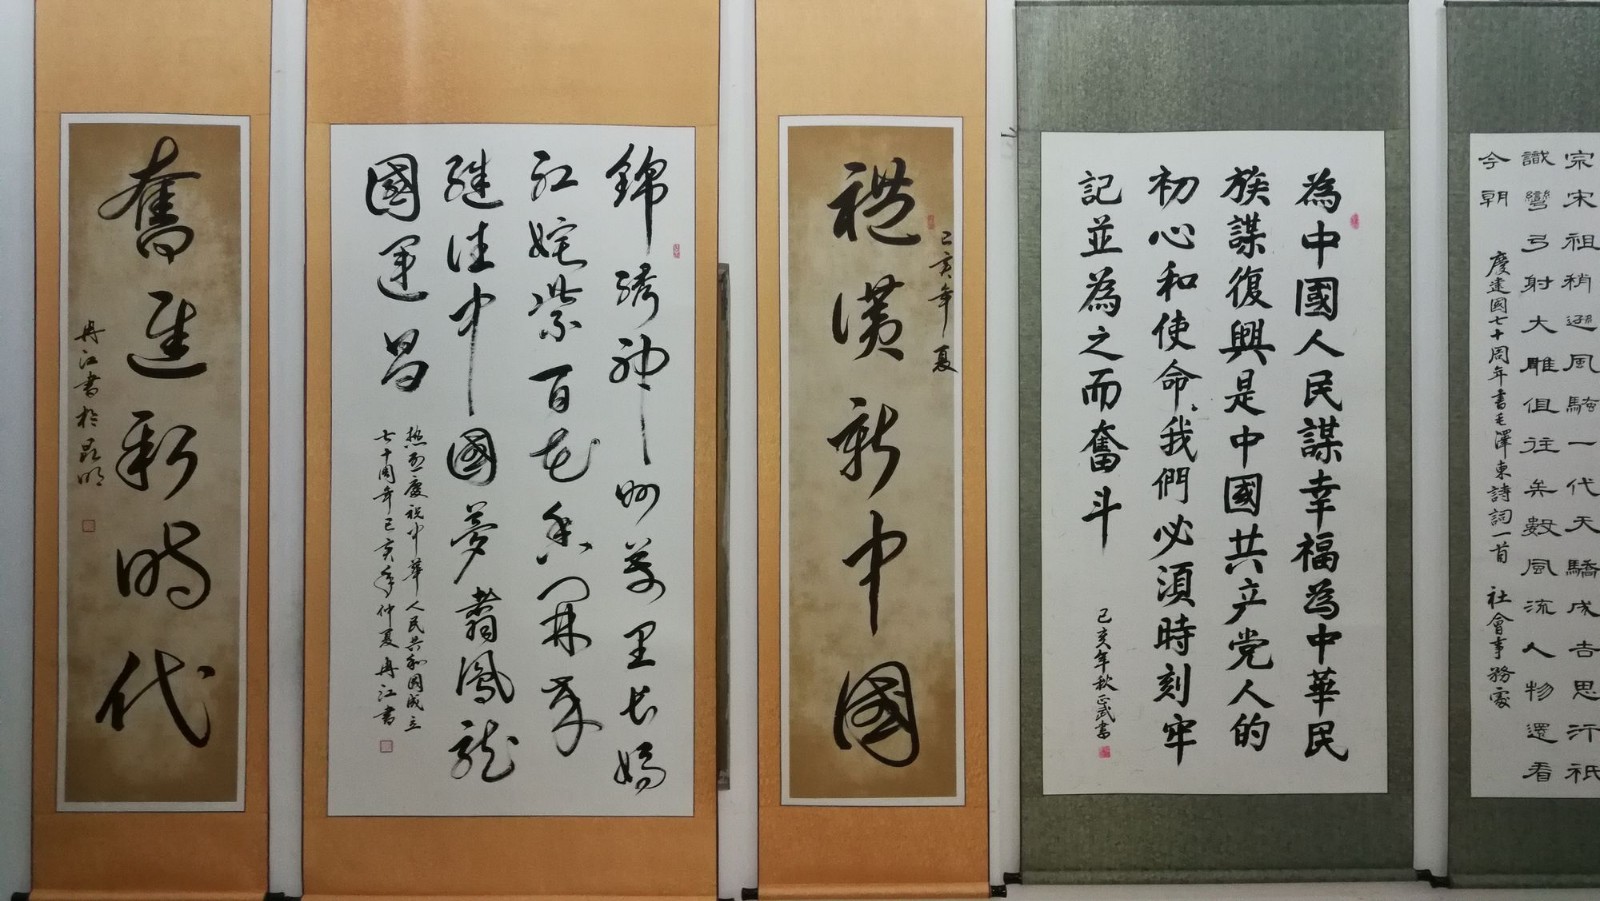 宗宋祖稍遜風騷一代天驕成吉思汗祇
識彎弓射大雕俱往矣數風流人物還看
今朝
慶建國七十周年書毛澤東詩詞一首 社會事務
為中國人民謀幸福為中華民
族謀復興是中國共产党人的
初心和使命我們必須時刻牢
記並為之而奮斗
己亥年秋正武書
己亥年夏
禮讚新中國
錦綉神州萬里長嫣
紅姹紫百花香開來
继往中國夢翥鳳龍
國運昌
熱烈慶祝中華人民共和國成立
七十周年己亥年仲夏冉江書
奮進新時代
冉江書於昆明